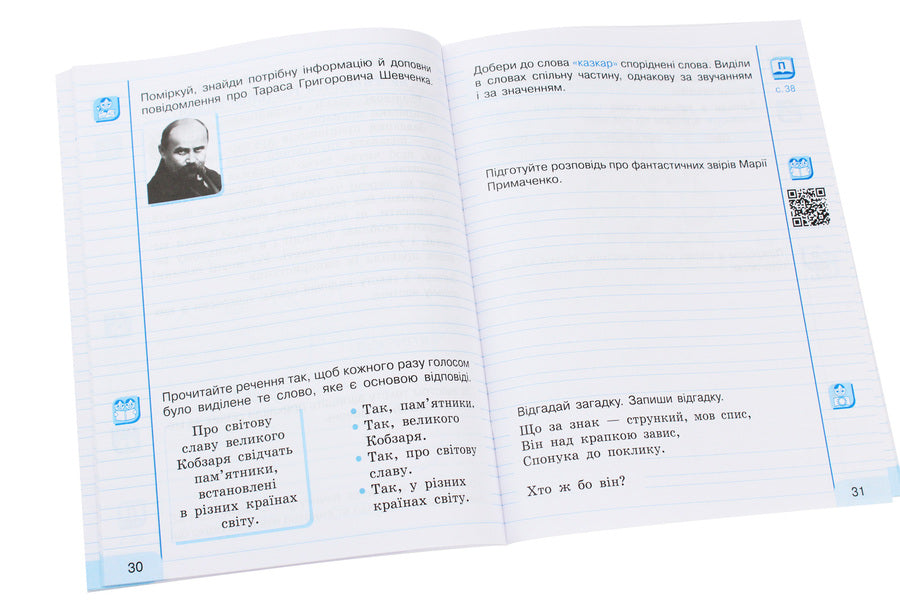 Поміркуй, знайди потрібну інформацію й доповни
повідомлення про Тараса Григоровича Шевченка.
Прочитайте речення так, щоб кожного разу голосом
було виділене те слово, яке є основою відповіді.
Про світову
славу великого
Кобзаря свідчать
пам'ятники,
встановлені
в різних країнах
світу.
• Так, пам'ятники.
• Так, великого
Кобзаря.
• Так, про світову
славу.
• Так, у різних
країнах світу.
30
Добери до слова «казкар» споріднені слова. Виділи
в словах спільну частину, однакову за звучанням
і за значенням.
П
с. 38
Підготуйте розповідь про фантастичних звірів Марії
Примаченко.
Відгадай загадку. Запиши відгадку.
Що за знак — стрункий, мов спис,
Він над крапкою завис,
Спонука до поклику.
Хто ж бо він?
31